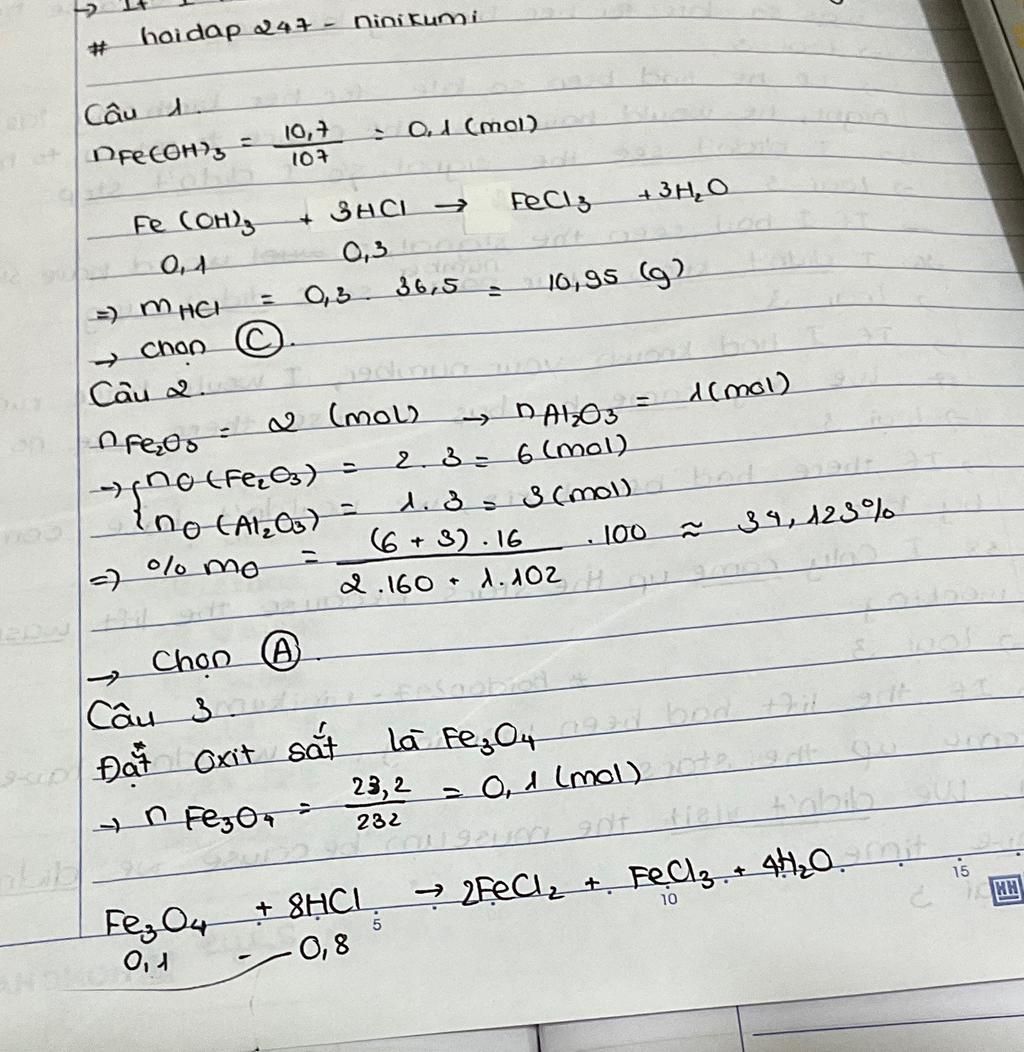 # hoidap 247 - ninikumi
Câu 1.
nFe(OH)3 = 10,7/107 = 0,1 (mol)
Fe(OH)3 + 3HCl → FeCl3 + 3H2O
0,1 0,3
=> mHCl = 0,3 . 36,5 = 10,95 (g)
→ chọn C.
Câu 2.
nFe2O3 = 2 (mol) → nAl2O3 = 1(mol)
→ { nO (Fe2O3) = 2.3 = 6 (mol)
nO (Al2O3) = 1.3 = 3 (mol)
=> % mO = (6 + 3).16 / 2.160 + 1.102 . 100 ≈ 34,123%
→ Chọn A.
Câu 3.
Đặt oxit sắt là Fe3O4
→ n Fe3O4 = 23,2/232 = 0,1 (mol)
Fe3O4 + 8HCl → 2FeCl2 + FeCl3 + 4H2O
0,1 - 0,8
5 10 15 HH